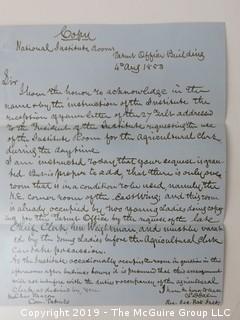 Copy
National Institute Rooms
Patent Office Building
4th Aug 1853
Sir,
I have the honor to acknowledge in the
name & by the instruction of the Institute the
reception of your letter of the 27th ult addressed
to the President of the Institute requesting the use
of the Institute Room for the Agricultural Clerk
during the daytime.
I am instructed to say that your request is gran-
ted. But is proper to add, that there is only one
room that is in a condition to be used, namely, the
N.E. Corner room of the East Wing and this room
is already occupied by two young ladies employ
ing for the Patent Office by the request of the late
Chief Clerk Mr Weightman and must be vaca-
ted by the young ladies before the Agricultural Clerk
Can take possession.
As the Institute occasionally occupy the room in question in the
afternoons after business hours it is presumed that this arrangement
will not interfere with the entire occupancy of the agricultural
Clerk as desired by you.
I have the honor
Copyright 2019 - TGE